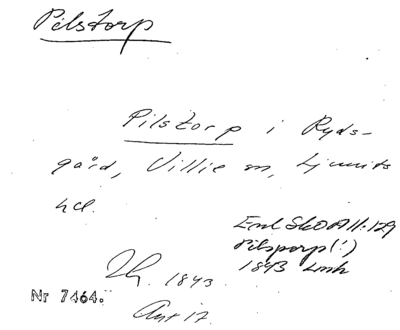 Pilstorp
Pilstorp i Ryds-
gård, Villie sn, Ljunits
hd.
Enl SkO A II:129
Pilsporp (!)
1843 Lmk
1843
Nr 7464.
Avt 17